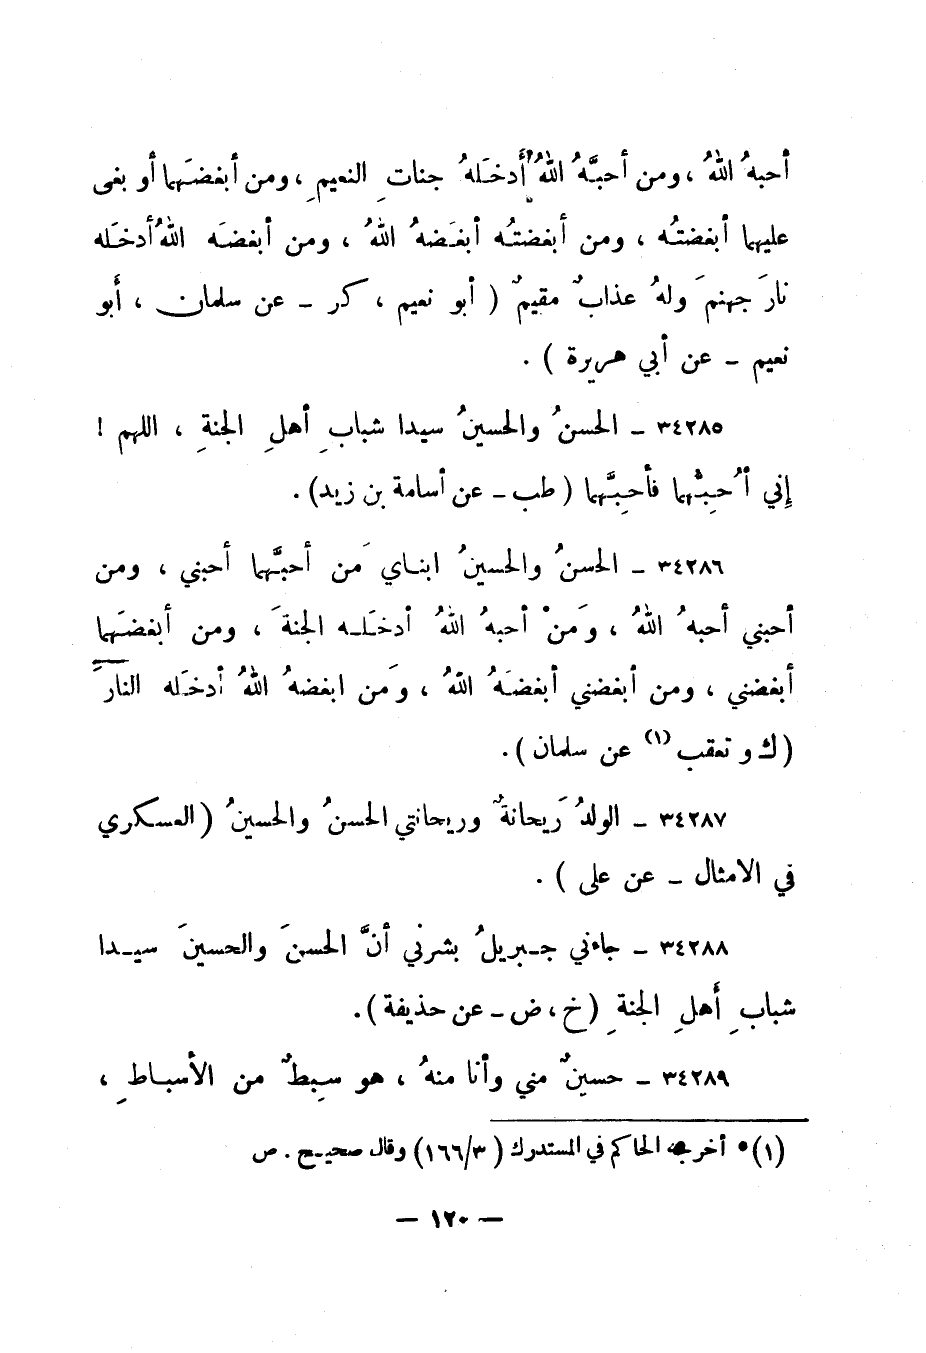 أحبهُ اللهُ ، ومن أحبَّهُ اللهُ أَدخَلهُ جناتِ النعيمِ ، ومن أبغضَهما أو بغى
عليهما أبغضتُه ، ومن أبغضتُه أبغَضهُ اللهُ ، ومن أبغضَه اللهُ أدخَله
نارَ جهنمَ ولهُ عذابٌ مقيمٌ ( أبو نعيم ، كر ـ عن سلمان ، أبو
نعيم ـ عن أبي هريرة ) .
٣٤٢٨٥ ـ الحسنُ والحسينُ سيدا شبابِ أهلِ الجنةِ ، اللهم !
إني أُحِبُّهما فأحِبَّهما ( طب ـ عن أسامة بن زيد ) .
٣٤٢٨٦ ـ الحسنُ والحسينُ ابناي مَن أحبَّهما أحبني ، ومن
أحبني أحبهُ اللهُ ، ومَنْ أحبهُ اللهُ أدخَله الجنةَ ، ومن أبغضَهما
أبغضني ، ومن أبغضني أبغضَهُ اللهُ ، ومَن ابغضهُ اللهُ أدخَله النارَ
( ك و تعقب (١) عن سلمان ) .
٣٤٢٨٧ ـ الولدُ رَيحانةٌ وريحانتي الحسنُ والحسينُ ( العسكري
في الامثال ـ عن على ) .
٣٤٢٨٨ ـ جاءني جبريلُ بشرني أنَّ الحسنَ والحسينَ سيدا
شبابِ أهلِ الجنةِ ( خ ، ض ـ عن حذيفة ) .
٣٤٢٨٩ ـ حسينٌ مني وأنا منهُ ، هو سِبطٌ من الأسباطِ ،
(١) • أخرجه الحاكم في المستدرك ( ٣/ ١٦٦ ) وقال صحيح . ص
— ١٢٠ —